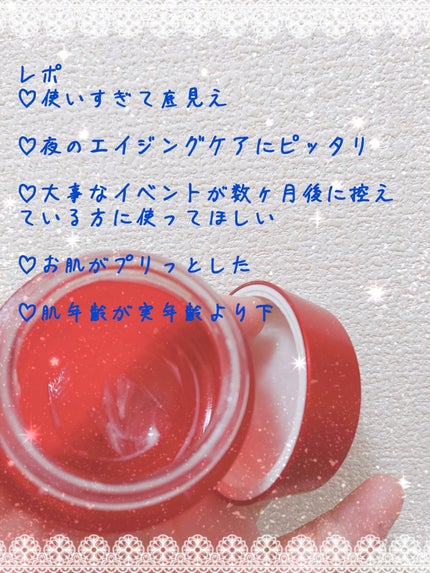 レポ
♡使いすぎて底見え
♡夜のエイジングケアにピッタリ
♡大事なイベントが数ヶ月後に控え
ている方に使ってほしい
♡お肌がプリっとした
♡肌年齢が実年齢より下